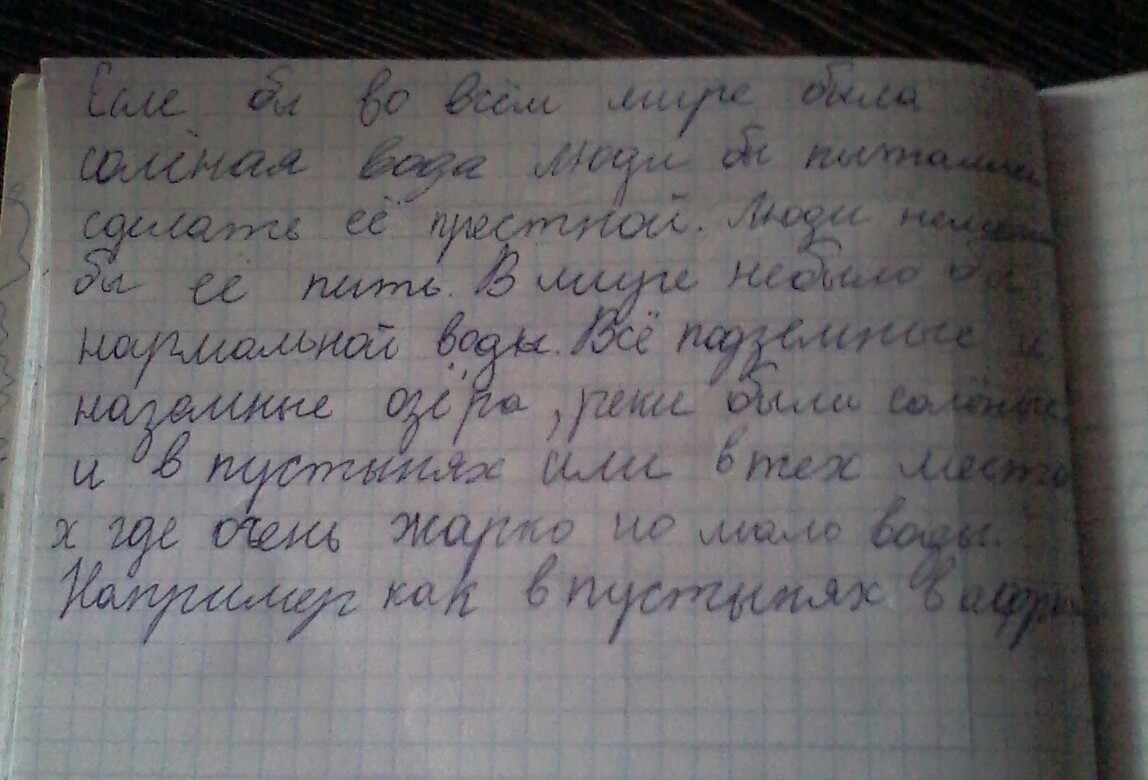 Если бы во всём мире была
солёная вода люди бы пытались
сделать её престной. Люди
бы её пить. В мире небыло бы
нармальной воды. Всё подземные и
наземные озёра, реки были солёные
и в пустынях или в тех места
х где очень жарко но мало воды.
Например как в пустынях в